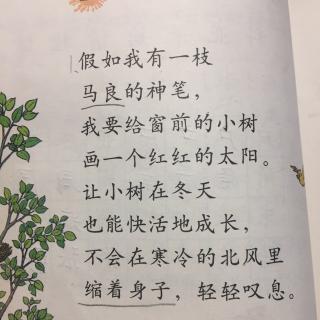 假如我有一枝
马良的神笔，
我要给窗前的小树
画一个红红的太阳。
让小树在冬天
也能快活地成长，
不会在寒冷的北风里
缩着身子，轻轻叹息。